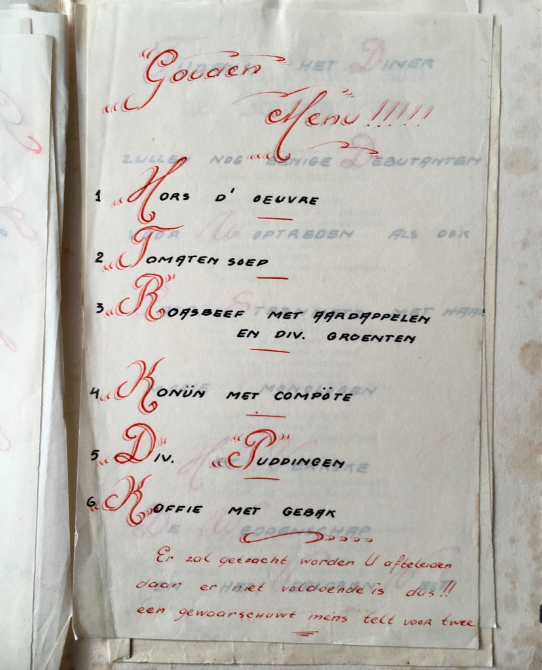 "Gouden
Menu!!!!!
1 "Hors d' oeuvre
2 "Tomaten soep
3 "Roasbeef met aardappelen
en div. groenten
4 "Konijn met compôte
5 "Div." "Puddingen
6 "Koffie met gebak
Er zal getracht worden U afteleiden
daan er niet voldoende is dus!!
een gewaarschuwt mens telt voor twee